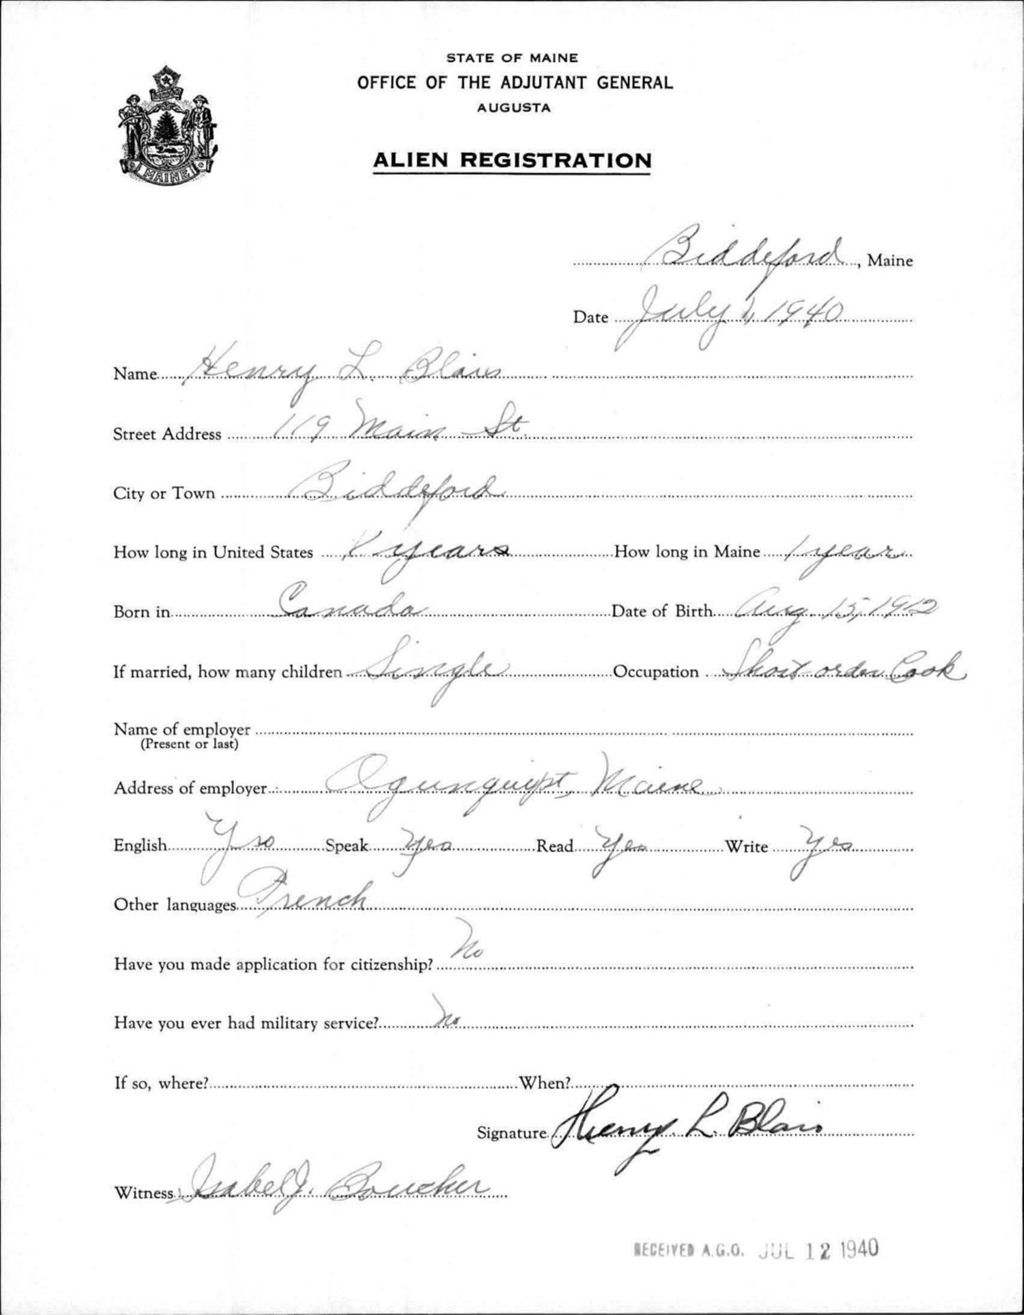 STATE OF MAINE
OFFICE OF THE ADJUTANT GENERAL
AUGUSTA
ALIEN REGISTRATION
MAINE
Biddeford, Maine
Date July 1, 1940
Name Henry L. Blais
Street Address 119 Main St.
City or Town Biddeford
How long in United States years How long in Maine 1 year
Born in Canada Date of Birth Aug 15, 1912
If married, how many children Single Occupation Short order Cook
Name of employer
(Present or last)
Address of employer Ogunquipt, Maine
English Yes Speak Yes Read Yes Write Yes
Other languages French
Have you made application for citizenship? No
Have you ever had military service? No
If so, where? When?
Signature Henry L. Blais
Witness Isabel J. Boucher
RECEIVED A.G.O. JUL 12 1940